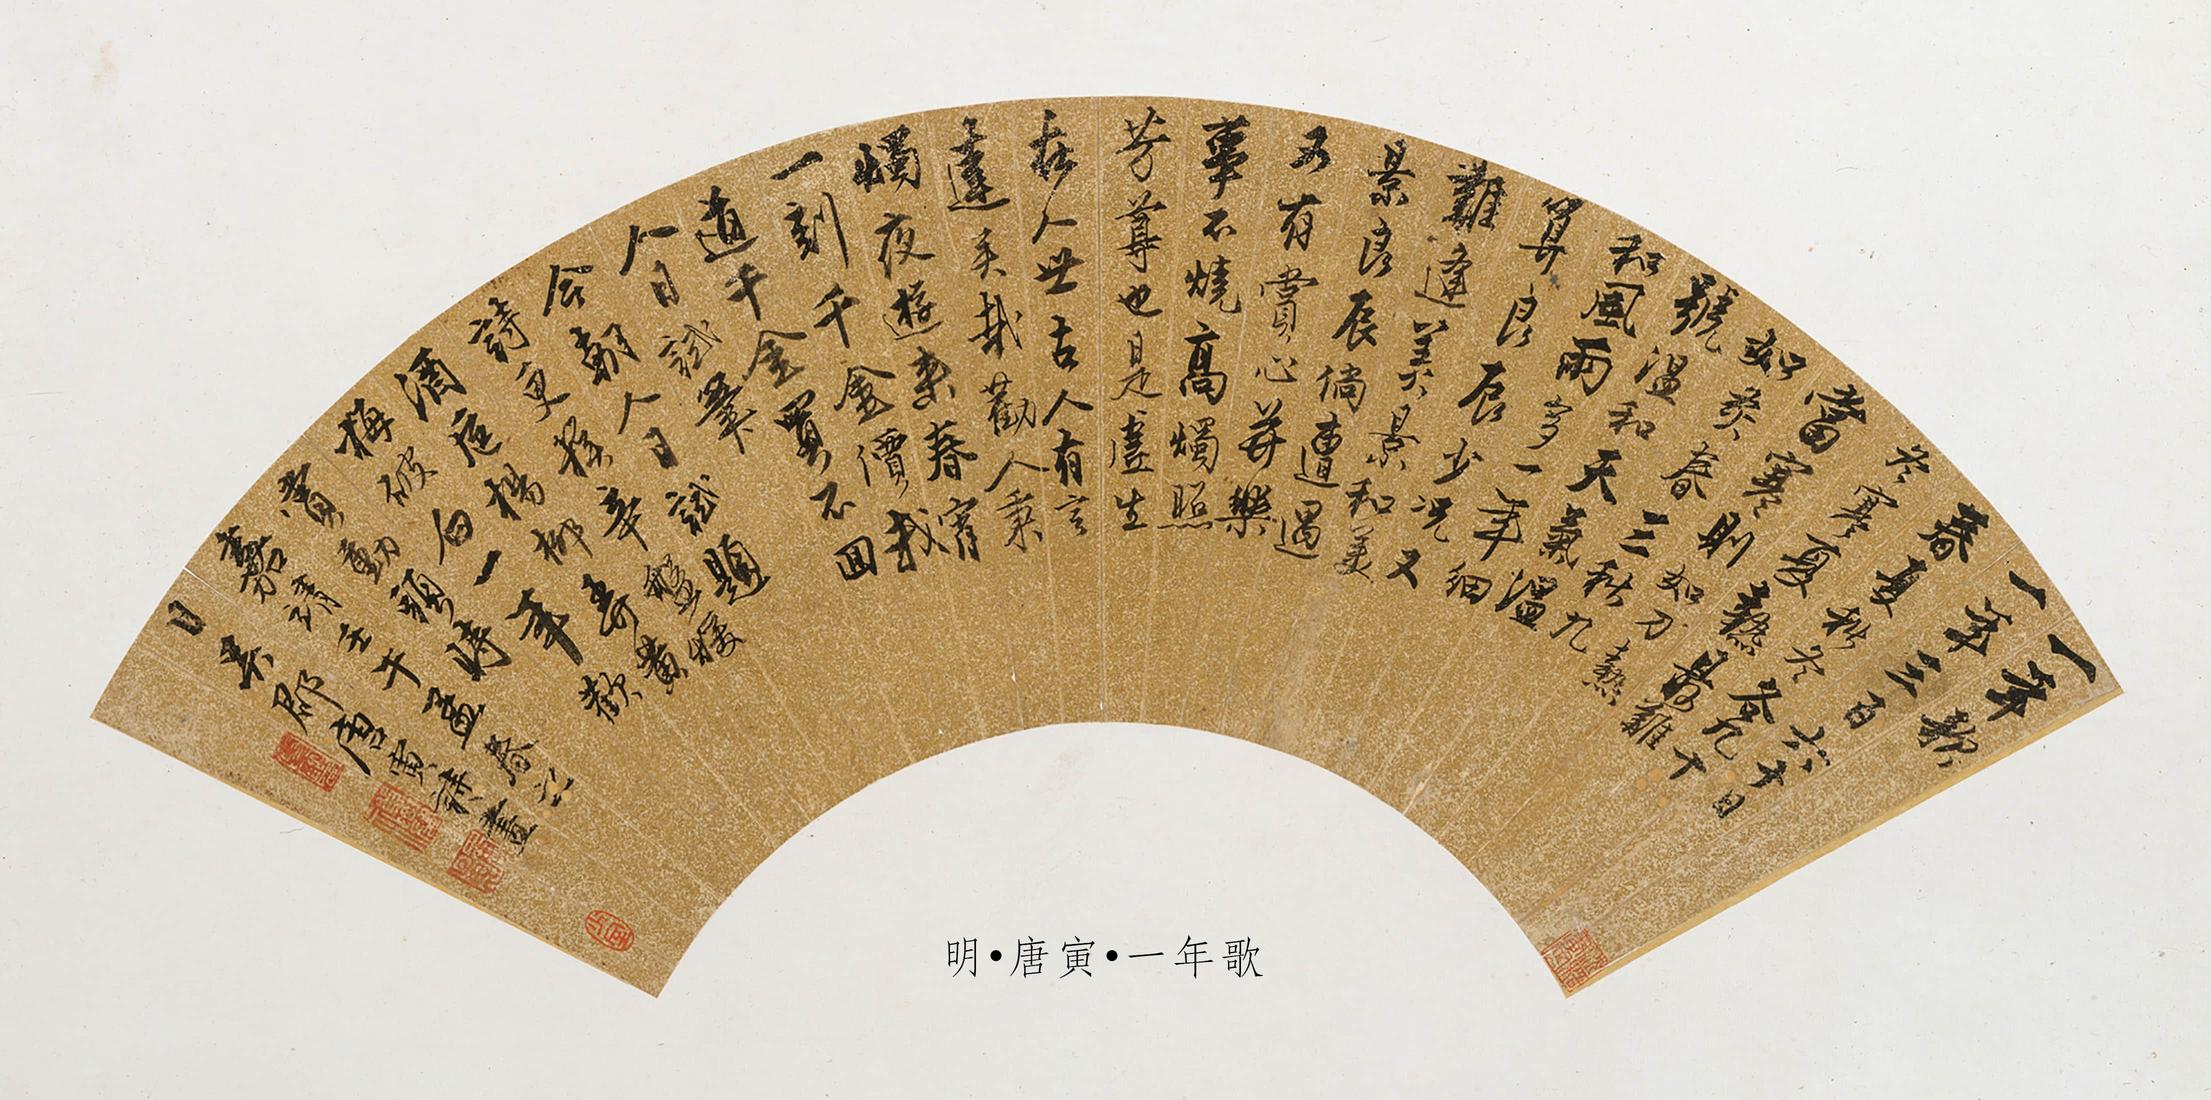 一年歌
一年三百六十日
春夏秋冬各九十
冬寒夏熱最難
當寒則如刀熱
如炙春三秋九
號溫和天氣溫
和風雨多一年細
算良辰少況又
難逢美景和美
景良辰倘遭遇
又有賞心并樂
事不燒高燭照
芳尊也是虛生
在人世古人有言
達矣哉勸人秉
燭夜遊來春宵
一刻千金價我
道千金買不回
人日試筆
今朝人日試題
詩更辛盤煖
酒卮楊柳弄黃
梅破白一年歡
賞動頭時
嘉靖壬午孟春七
日吳郡唐寅并畫
明•唐寅•一年歌